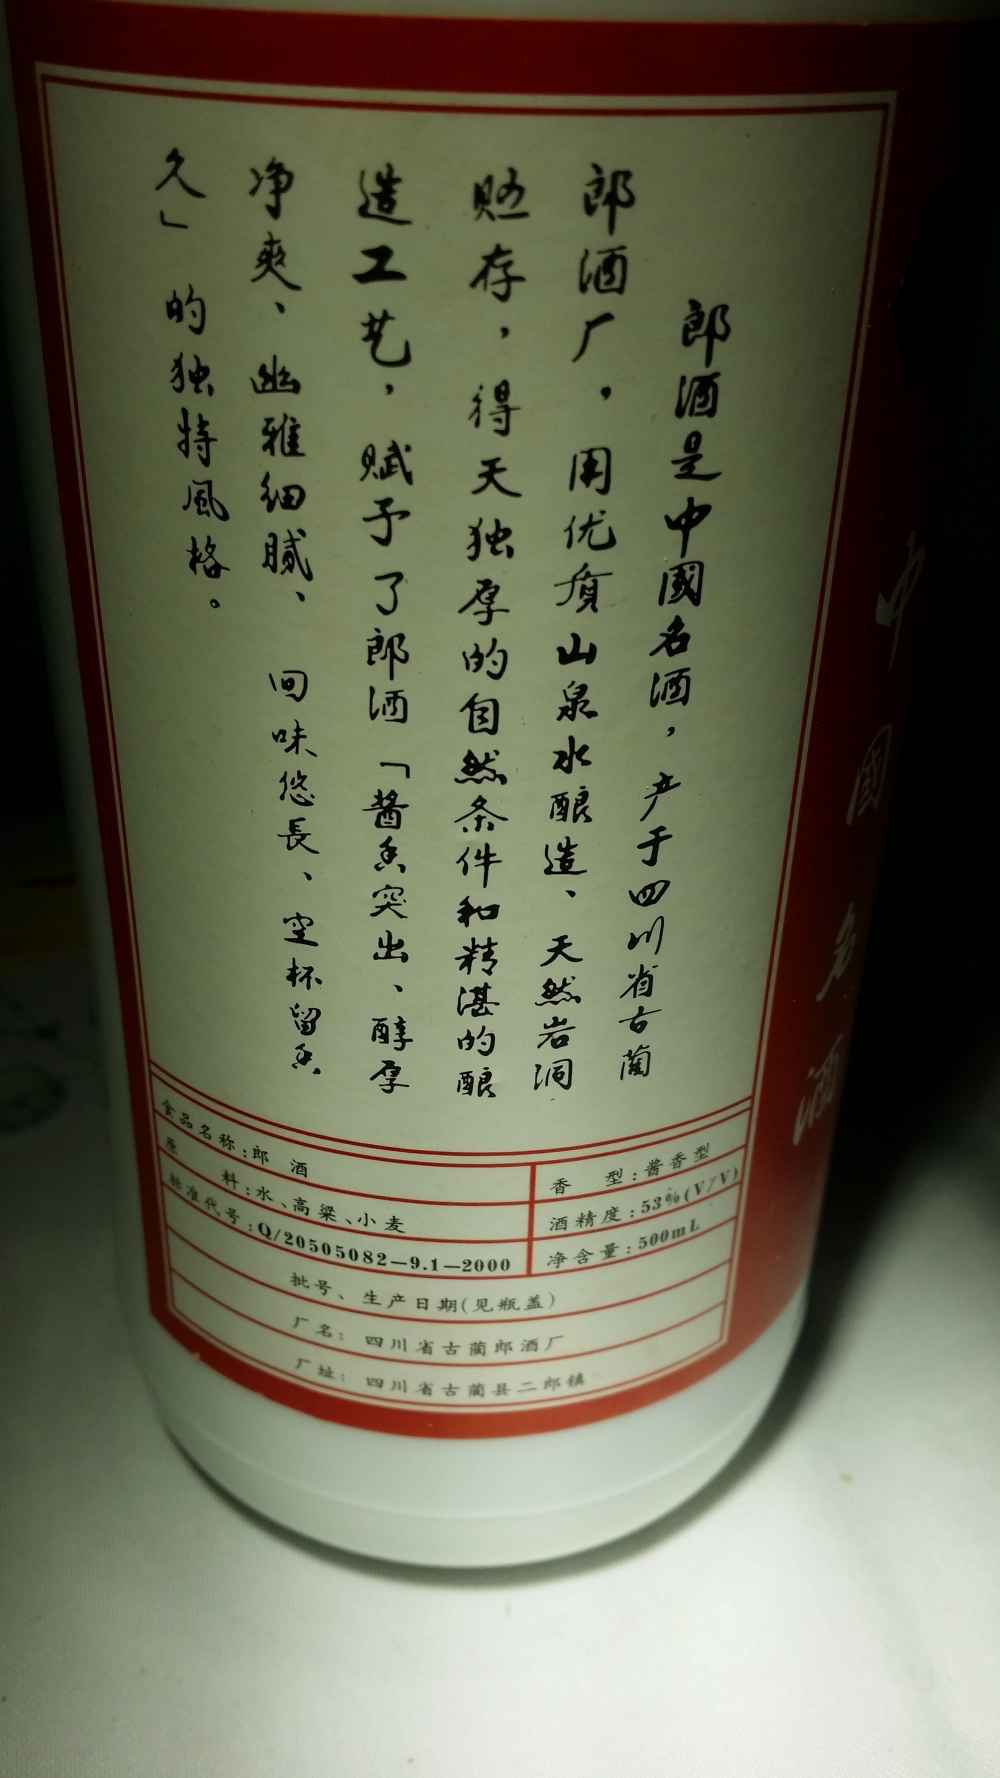 郎酒是中國名酒，产于四川省古蔺
郎酒厂，用优质山泉水酿造、天然岩洞
贮存，得天独厚的自然条件和精湛的酿
造工艺，赋予了郎酒「酱香突出、醇厚
净爽、幽雅细腻、回味悠長、空杯留香
久」的独特風格。
食品名称：郎酒
香型：酱香型
原料：水、高粱、小麦
酒精度：53%(V/V)
标准代号：Q/20505082—9.1—2000
净含量：500mL
批号、生产日期(见瓶盖)
厂名：四川省古蔺郎酒厂
厂址：四川省古蔺县二郎镇
中國名酒